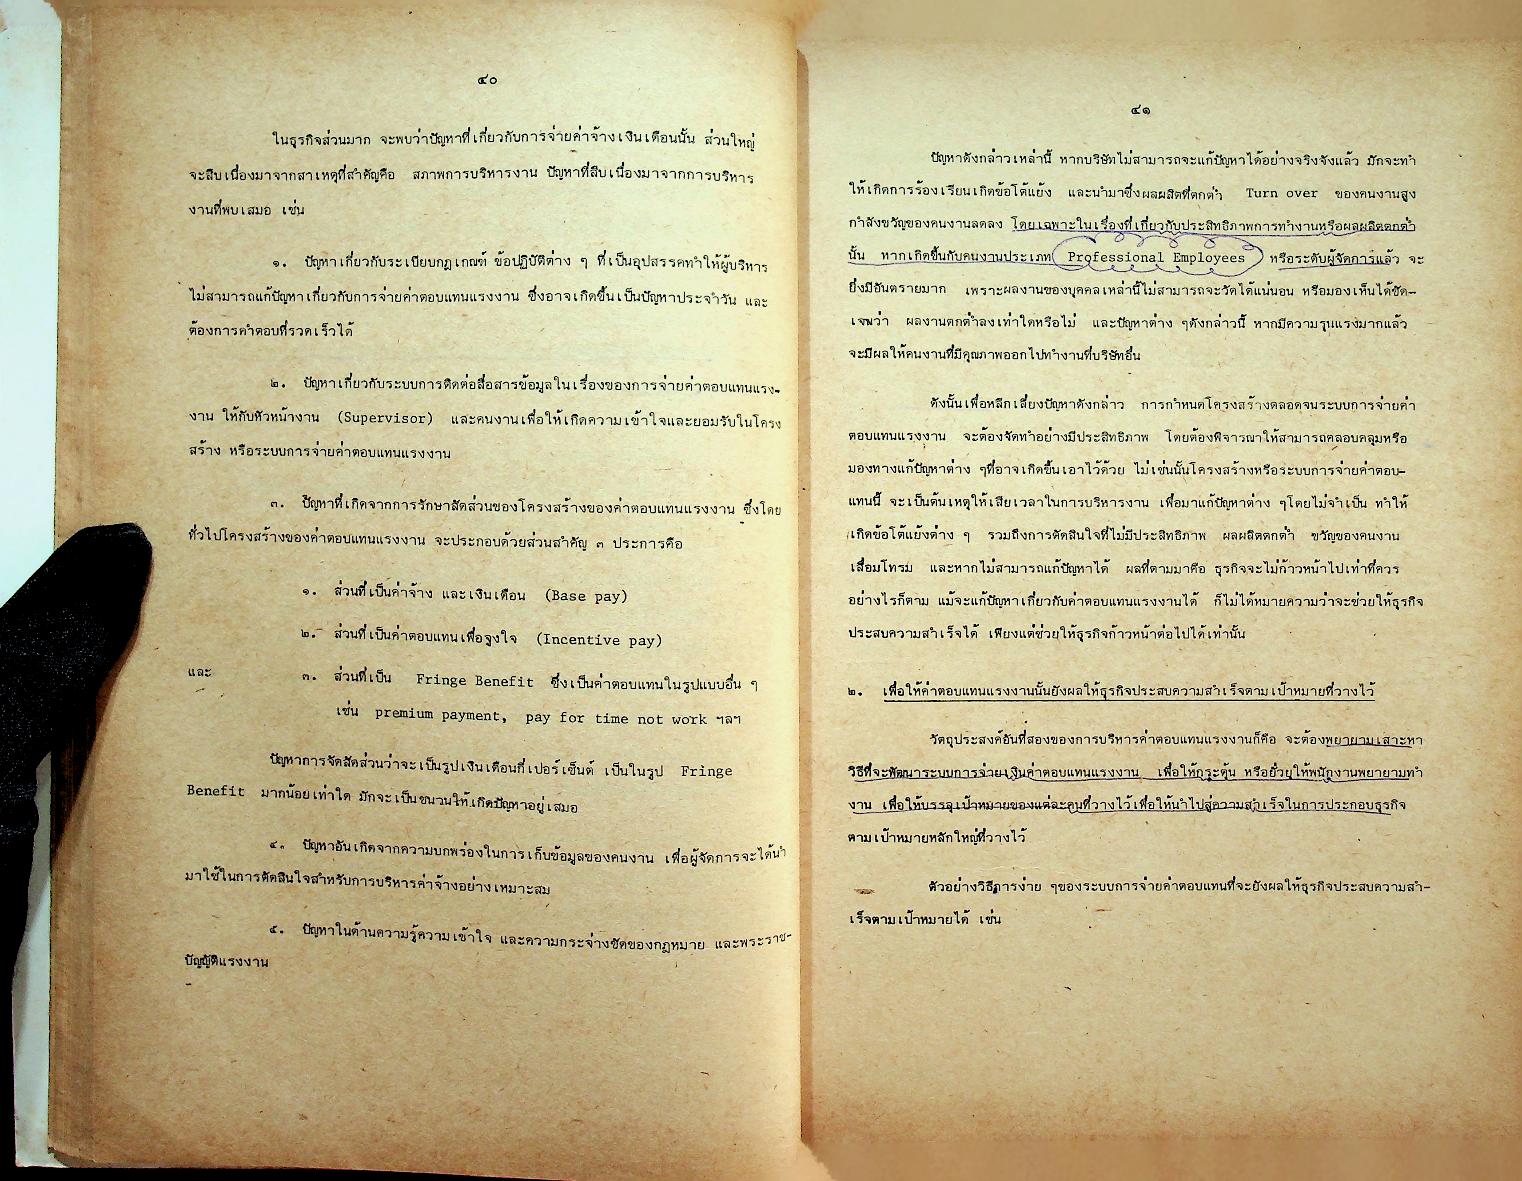 ๔๐
ในธุรกิจส่วนมาก จะพบว่าปัญหาที่เกี่ยวกับการจ่ายค่าจ้างเงินเดือนนั้น ส่วนใหญ่
จะสืบเนื่องมาจากสาเหตุที่สำคัญคือ สภาพการบริหารงาน ปัญหาที่สืบเนื่องมาจากการบริหาร
งานที่พบเสมอ เช่น
๑. ปัญหาเกี่ยวกับระเบียบกฎเกณฑ์ ข้อปฏิบัติต่าง ๆ ที่เป็นอุปสรรคทำให้ผู้บริหาร
ไม่สามารถแก้ปัญหาเกี่ยวกับการจ่ายค่าตอบแทนแรงงาน ซึ่งอาจเกิดขึ้นเป็นปัญหาประจำวัน และ
ต้องการคำตอบที่รวดเร็วได้
๒. ปัญหาเกี่ยวกับระบบการติดต่อสื่อสารข้อมูลในเรื่องของการจ่ายค่าตอบแทนแรง-
งาน ให้กับหัวหน้างาน (Supervisor) และคนงานเพื่อให้เกิดความเข้าใจและยอมรับในโครง
สร้าง หรือระบบการจ่ายค่าตอบแทนแรงงาน
๓. ปัญหาที่เกิดจากการรักษาสัดส่วนของโครงสร้างของค่าตอบแทนแรงงาน ซึ่งโดย
ทั่วไปโครงสร้างของค่าตอบแทนแรงงาน จะประกอบด้วยส่วนสำคัญ ๓ ประการคือ
๑. ส่วนที่เป็นค่าจ้าง และเงินเดือน (Base pay)
๒. ส่วนที่เป็นค่าตอบแทนเพื่อจูงใจ (Incentive pay)
และ ๓. ส่วนที่เป็น Fringe Benefit ซึ่งเป็นค่าตอบแทนในรูปแบบอื่น ๆ
เช่น premium payment, pay for time not work ฯลฯ
ปัญหาการจัดสัดส่วนว่าจะเป็นรูปเงินเดือนกี่เปอร์เซ็นต์ เป็นในรูป Fringe
Benefit มากน้อยเท่าใด มักจะเป็นชนวนให้เกิดปัญหาอยู่เสมอ
๔. ปัญหาอันเกิดจากความบกพร่องในการเก็บข้อมูลของคนงาน เพื่อผู้จัดการจะได้นำ
มาใช้ในการตัดสินใจสำหรับการบริหารค่าจ้างอย่างเหมาะสม
๕. ปัญหาในด้านความรู้ความเข้าใจ และความกระจ่างชัดของกฎหมาย และพระราช-
บัญญัติแรงงาน
๔๑
ปัญหาดังกล่าวเหล่านี้ หากบริษัทไม่สามารถจะแก้ปัญหาได้อย่างจริงจังแล้ว มักจะทำ
ให้เกิดการร้องเรียนเกิดข้อโต้แย้ง และนำมาซึ่งผลผลิตที่ตกต่ำ Turn over ของคนงานสูง
กำลังขวัญของคนงานลดลง โดยเฉพาะในเรื่องที่เกี่ยวกับประสิทธิภาพการทำงานหรือผลผลิตตกต่ำ
นั้น หากเกิดขึ้นกับคนงานประเภท Professional Employees หรือระดับผู้จัดการแล้ว จะ
ยิ่งมีอันตรายมาก เพราะผลงานของบุคคลเหล่านี้ไม่สามารถจะวัดได้แน่นอน หรือมองเห็นได้ชัด-
เจนว่า ผลงานตกต่ำลงเท่าใดหรือไม่ และปัญหาต่าง ๆดังกล่าวนี้ หากมีความรุนแรงมากแล้ว
จะมีผลให้คนงานที่มีคุณภาพออกไปทำงานที่บริษัทอื่น
ดังนั้นเพื่อหลีกเลี่ยงปัญหาดังกล่าว การกำหนดโครงสร้างตลอดจนระบบการจ่ายค่า
ตอบแทนแรงงาน จะต้องจัดทำอย่างมีประสิทธิภาพ โดยต้องพิจารณาให้สามารถคลอบคลุมหรือ
มองทางแก้ปัญหาต่าง ๆที่อาจเกิดขึ้นเอาไว้ด้วย ไม่เช่นนั้นโครงสร้างหรือระบบการจ่ายค่าตอบ-
แทนนี้ จะเป็นต้นเหตุให้เสียเวลาในการบริหารงาน เพื่อมาแก้ปัญหาต่าง ๆโดยไม่จำเป็น ทำให้
เกิดข้อโต้แย้งต่าง ๆ รวมถึงการตัดสินใจที่ไม่มีประสิทธิภาพ ผลผลิตตกต่ำ ขวัญของคนงาน
เสื่อมโทรม และหากไม่สามารถแก้ปัญหาได้ ผลที่ตามมาคือ ธุรกิจจะไม่ก้าวหน้าไปเท่าที่ควร
อย่างไรก็ตาม แม้จะแก้ปัญหาเกี่ยวกับค่าตอบแทนแรงงานได้ ก็ไม่ได้หมายความว่าจะช่วยให้ธุรกิจ
ประสบความสำเร็จได้ เพียงแต่ช่วยให้ธุรกิจก้าวหน้าต่อไปได้เท่านั้น
๒. เพื่อให้ค่าตอบแทนแรงงานนั้นยังผลให้ธุรกิจประสบความสำเร็จตามเป้าหมายที่วางไว้
วัตถุประสงค์อันที่สองของการบริหารค่าตอบแทนแรงงานก็คือ จะต้องพยายามเสาะหา
วิธีที่จะพัฒนาระบบการจ่ายเงินค่าตอบแทนแรงงาน เพื่อให้กระตุ้น หรือยั่วยุให้พนักงานพยายามทำ
งาน เพื่อให้บรรลุเป้าหมายของแต่ละคนที่วางไว้เพื่อให้นำไปสู่ความสำเร็จในการประกอบธุรกิจ
ตามเป้าหมายหลักใหญ่ที่วางไว้
ตัวอย่างวิธีการง่าย ๆของระบบการจ่ายค่าตอบแทนที่จะยังผลให้ธุรกิจประสบความสำ-
เร็จตามเป้าหมายได้ เช่น